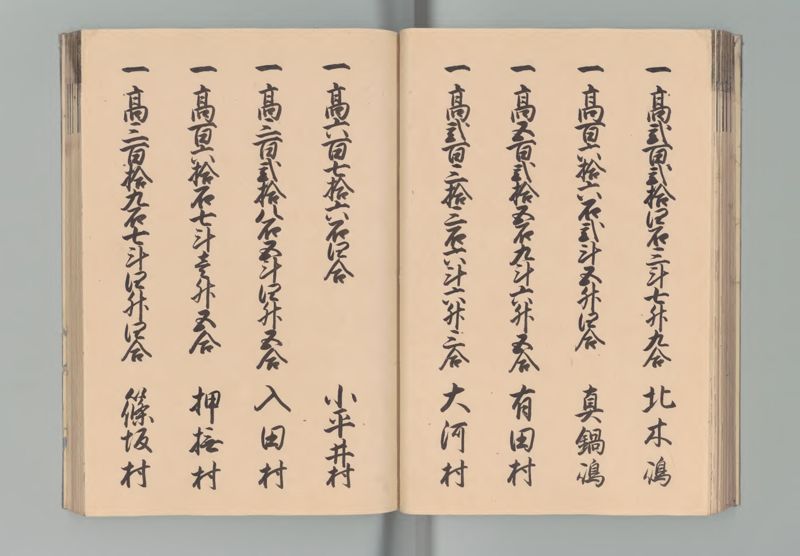 一 高弐百弐拾四石三斗七升九合 北木嶋
一 高百六拾六石弐斗五升四合 真鍋嶋
一 高五百弐拾五石九斗六升五合 有田村
一 高弐百三拾三石六斗六升三合 大河村
一 高六百七拾六石四合 小平井村
一 高三百弐拾八石五斗四升五合 入田村
一 高百六拾石七斗壱升五合 押撫村
一 高三百拾九石七斗四升四合 篠坂村